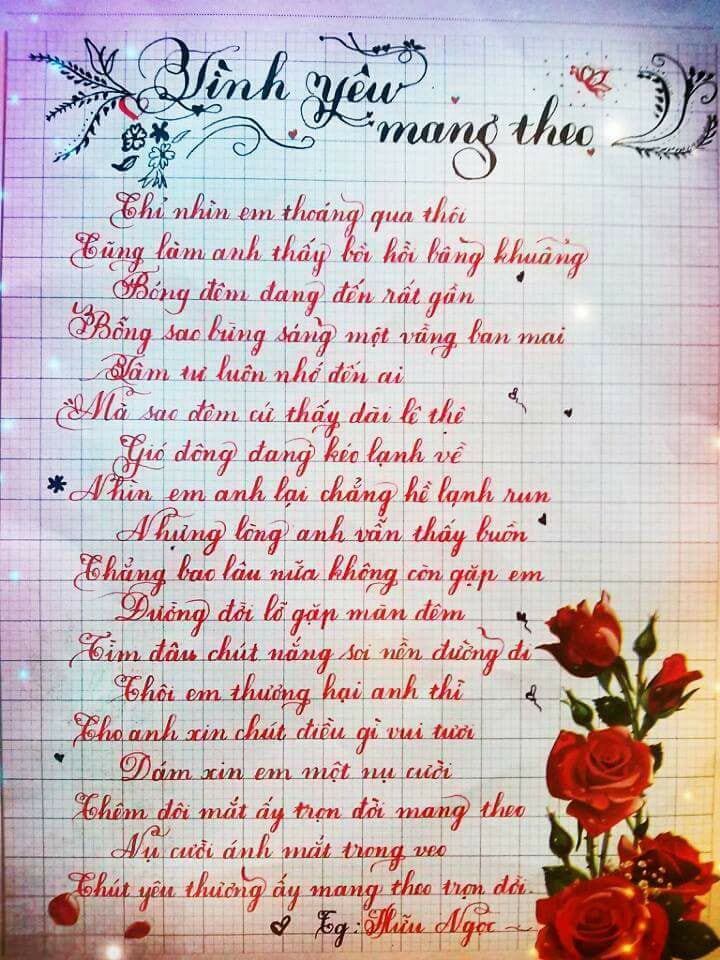 Tình yêu
mang theo
Chỉ nhìn em thoáng qua thôi
Cũng làm anh thấy bồi hồi bâng khuâng
Bóng đêm đang đến rất gần
Bỗng sao bừng sáng một vầng ban mai
Tâm tư luôn nhớ đến ai
Mà sao đêm cứ thấy dài lê thê
Gió đông đang kéo lạnh về
Nhìn em anh lại chẳng hề lạnh run
Nhưng lòng anh vẫn thấy buồn
Chẳng bao lâu nữa không còn gặp em
Đường đời lỡ gặp màn đêm
Tìm đâu chút nắng soi nền đường đi
Thôi em thương hại anh thì
Cho anh xin chút điều gì vui tươi
Dám xin em một nụ cười
Thêm đôi mắt ấy trọn đời mang theo
Nụ cười ánh mắt trong veo
Chút yêu thương ấy mang theo trọn đời.
Tg: Hữu Ngọc